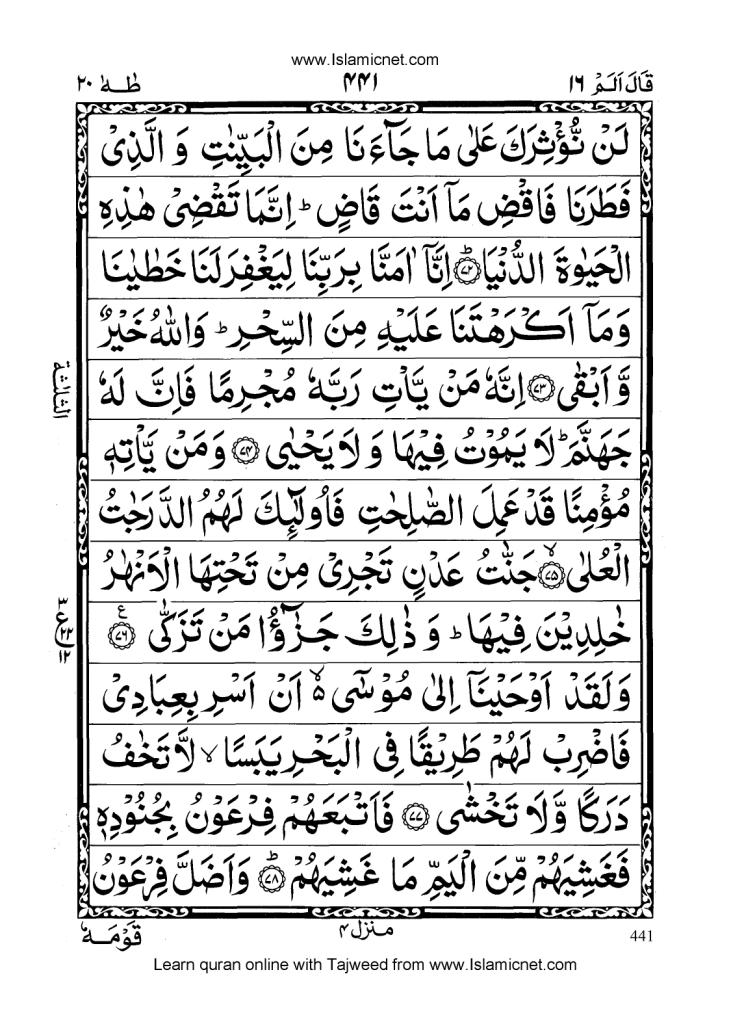 www.Islamicnet.com
قَالَ اَلَمْ ۱۶
۴۴۱
طٰهٰ ۲۰
لَنْ نُّؤْثِرَكَ عَلٰى مَا جَآءَنَا مِنَ الْبَيِّنٰتِ وَ الَّذِىْ
فَطَرَنَا فَاقْضِ مَآ اَنْتَ قَاضٍ ؕ اِنَّمَا تَقْضِىْ هٰذِهِ
الْحَيٰوةَ الدُّنْيَا ؕ ﴿۷۲﴾ اِنَّآ اٰمَنَّا بِرَبِّنَا لِيَغْفِرَ لَنَا خَطٰيٰنَا
وَمَآ اَكْرَهْتَنَا عَلَيْهِ مِنَ السِّحْرِ ؕ وَاللّٰهُ خَيْرٌ
وَّ اَبْقٰى ﴿۷۳﴾ اِنَّهٗ مَنْ يَّاْتِ رَبَّهٗ مُجْرِمًا فَاِنَّ لَهٗ
جَهَنَّمَ ؕ لَا يَمُوْتُ فِيْهَا وَ لَا يَحْيٰى ﴿۷۴﴾ وَمَنْ يَّاْتِهٖ
مُؤْمِنًا قَدْ عَمِلَ الصّٰلِحٰتِ فَاُولٰٓئِكَ لَهُمُ الدَّرَجٰتُ
الْعُلٰى ۙ ﴿۷۵﴾ جَنّٰتُ عَدْنٍ تَجْرِىْ مِنْ تَحْتِهَا الْاَنْهٰرُ
خٰلِدِيْنَ فِيْهَا ؕ وَ ذٰلِكَ جَزٰٓؤُا مَنْ تَزَكّٰى ﴿۷۶﴾ ع
وَلَقَدْ اَوْحَيْنَآ اِلٰى مُوْسٰٓى ۙ اَنْ اَسْرِ بِعِبَادِىْ
فَاضْرِبْ لَهُمْ طَرِيْقًا فِى الْبَحْرِ يَبَسًا ۙ لَّا تَخٰفُ
دَرَكًا وَّلَا تَخْشٰى ﴿۷۷﴾ فَاَتْبَعَهُمْ فِرْعَوْنُ بِجُنُوْدِهٖ
فَغَشِيَهُمْ مِّنَ الْيَمِّ مَا غَشِيَهُمْ ؕ ﴿۷۸﴾ وَاَضَلَّ فِرْعَوْنُ
الثلٰثة
۳
ع ۲۲
۱۲
منزل ۴
قَوْمَهٗ
441
Learn quran online with Tajweed from www.Islamicnet.com